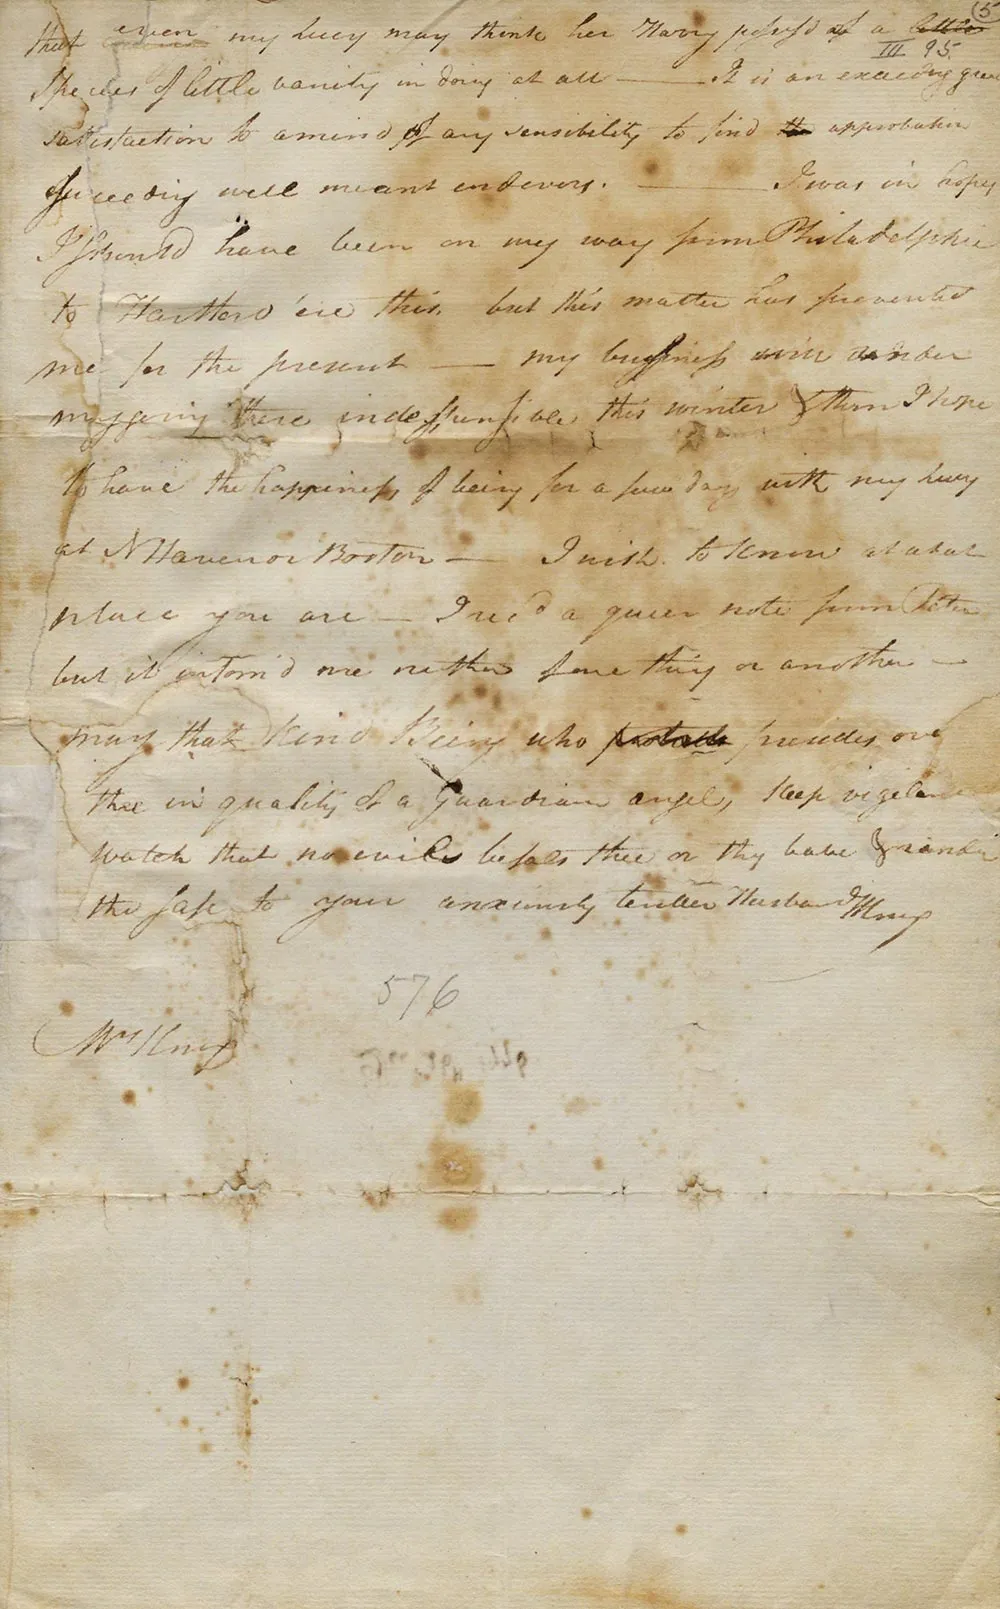 (5)
that even my Lucy may think her Harry possess'd of a little
III 95.
Species of little vanity in doing at all — It is an exceeding great
satisfaction to a mind of any sensibility to find the approbation
succeeding well meant endevors. — I was in hopes
I should have been on my way from Philadelphia
to Hartford 'ere this. but this matter has prevented
me for the present — my bussiness will render
my going there indespensible this winter & then I hope
to have the happiness of being for a few days with my Lucy
at N Haven or Boston — I wish to know at what
place you are — I rec'd a queer note from Peter
but it inform'd me neither of one thing or another —
may that kind Being who presides over
thee in quality of a Guardian angel, keep vigilant
watch that no evils befals thee or thy babe & render
thee safe to your anxiously tender Husband HKnox
576
Mrs Knox